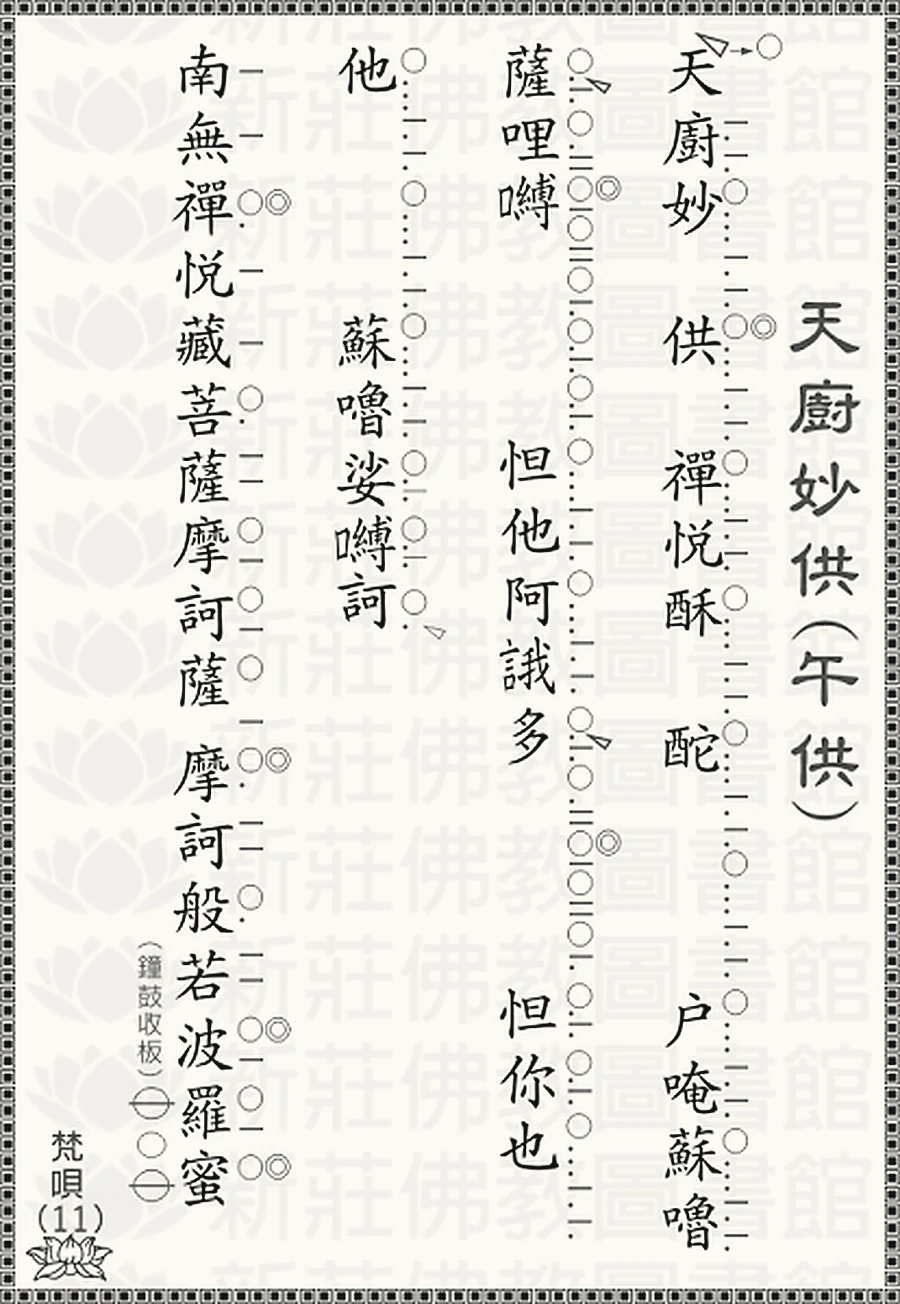 天廚妙供(午供)
天廚妙供禪悅酥酡户唵蘇嚕
薩哩嚩怛他阿誐多怛你也
他蘇嚕娑嚩訶
南無禪悅藏菩薩摩訶薩摩訶般若波羅蜜
(鐘鼓收板)
梵唄
(11)
新莊佛教圖書館